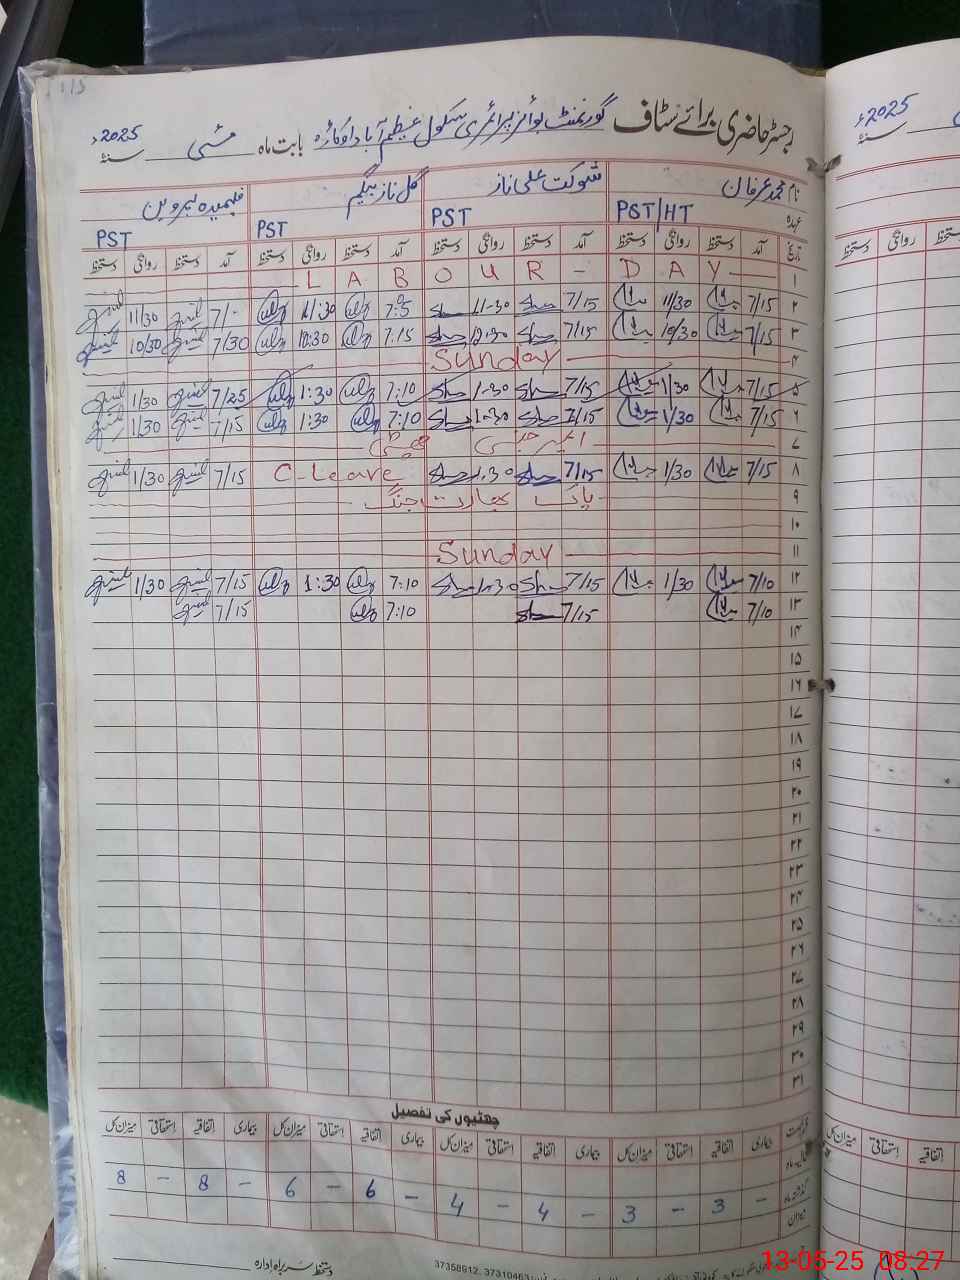 رجسٹر حاضری برائے سٹاف گورنمنٹ بوائز پرائمری سکول عظیم آباد اوکاڑہ بابت ماہ مئی سنۂ 2025ء
نام محمد عرفان شوکت علی ناز گل ناز بیگم فہمیدہ پروین
عہدہ PST/HT PST PST PST
تاریخ آمد دستخط روانگی دستخط آمد دستخط روانگی دستخط آمد دستخط روانگی دستخط آمد دستخط روانگی دستخط
۱ LABOUR - DAY
۲ 7/15 11/30 7/15 11-30 11:30 11/30
۳ 7/15 10/30 7/15 10:30 7:15 10:30 7/30 10/30
۴ Sunday
۵ 7/15 1/30 7/15 1-30 7:10 1:30 7/25 1/30
۶ 7/15 1/30 7/15 1-30 7:10 1:30 7/15 1/30
۷ ایمرجنسی چھٹی
۸ 7/15 1/30 7/15 1.30 C-Leave 7/15 1/30
۹ پاک بھارت جنگ
۱۰
۱۱ Sunday
۱۲ 7/10 1/30 7/15 1.30 7:10 1:30 7/15 1/30
۱۳ 7/10 7/15 7:10 7/15
۱۴
۱۵
۱۶
۱۷
۱۸
۱۹
۲۰
۲۱
۲۲
۲۳
۲۴
۲۵
۲۶
۲۷
۲۸
۲۹
۳۰
۳۱
چھٹیوں کی تفصیل
بیماری اتفاقیہ استحقاقی میزان کل بیماری اتفاقیہ استحقاقی میزان کل بیماری اتفاقیہ استحقاقی میزان کل بیماری اتفاقیہ استحقاقی میزان کل
گذشتہ ماہ - 3 - 3 - 4 - 4 - 6 - 6 - 8 - 8
میزان
دستخط سربراہ ادارہ
37358912, 37310463
2025ء سنۂ
دستخط روانگی دستخط
میزان کل استحقاقی اتفاقیہ
13-05-25 08:27